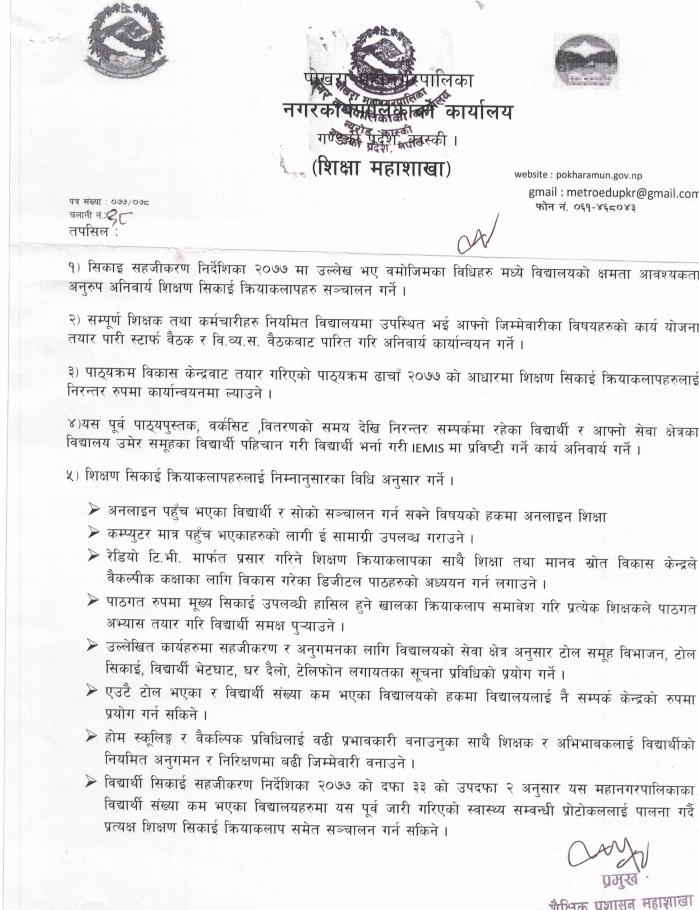 पोखरा महानगरपालिका
नगरकार्यपालिकाको कार्यालय
गण्डकी प्रदेश, कास्की ।
(शिक्षा महाशाखा)
website : pokharamun.gov.np
gmail : metroedupkr@gmail.com
फोन नं. ०६१-४६८०४३
पत्र संख्या : ०७७/०७८
चलानी नं.:
तपसिल :
१) सिकाइ सहजीकरण निर्देशिका २०७७ मा उल्लेख भए वमोजिमका विधिहरु मध्ये विद्यालयको क्षमता आवश्यकता
अनुरुप अनिवार्य शिक्षण सिकाई क्रियाकलापहरु सञ्चालन गर्ने ।
२) सम्पूर्ण शिक्षक तथा कर्मचारीहरु नियमित विद्यालयमा उपस्थित भई आफ्नो जिम्मेवारीका विषयहरुको कार्य योजना
तयार पारी स्टार्फ बैठक र वि.व्य.स. वैठकवाट पारित गरि अनिवार्य कार्यान्वयन गर्ने ।
३) पाठ्यक्रम विकास केन्द्रवाट तयार गरिएको पाठ्यक्रम ढाचाँ २०७७ को आधारमा शिक्षण सिकाई क्रियाकलापहरुलाई
निरन्तर रुपमा कार्यान्वयनमा ल्याउने ।
४)यस पूर्व पाठ्यपुस्तक, वर्कसिट ,वितरणको समय देखि निरन्तर सम्पर्कमा रहेका विद्यार्थी र आफ्नो सेवा क्षेत्रका
विद्यालय उमेर समूहका विद्यार्थी पहिचान गरी विद्यार्थी भर्ना गरी IEMIS मा प्रविष्टी गर्ने कार्य अनिवार्य गर्ने ।
५) शिक्षण सिकाई क्रियाकलापहरुलाई निम्नानुसारका विधि अनुसार गर्ने ।
➢ अनलाइन पहुँच भएका विद्यार्थी र सोको सञ्चालन गर्न सक्ने विषयको हकमा अनलाइन शिक्षा
➢ कम्प्युटर मात्र पहुँच भएकाहरुको लागी ई सामाग्री उपलव्ध गराउने ।
➢ रेडियो टि.भी. मार्फत प्रसार गरिने शिक्षण क्रियाकलापका साथै शिक्षा तथा मानव स्रोत विकास केन्द्रले
वैकल्पीक कक्षाका लागि विकास गरेका डिजीटल पाठहरुको अध्ययन गर्न लगाउने ।
➢ पाठगत रुपमा मूख्य सिकाई उपलव्धी हासिल हुने खालका क्रियाकलाप समावेश गरि प्रत्येक शिक्षकले पाठगत
अभ्यास तयार गरि विद्यार्थी समक्ष पुऱ्याउने ।
➢ उल्लेखित कार्यहरुमा सहजीकरण र अनुगमनका लागि विद्यालयको सेवा क्षेत्र अनुसार टोल समूह विभाजन, टोल
सिकाई, विद्यार्थी भेटघाट, घर दैलो, टेलिफोन लगायतका सूचना प्रविधिको प्रयोग गर्ने ।
➢ एउटै टोल भएका र विद्यार्थी संख्या कम भएका विद्यालयको हकमा विद्यालयलाई नै सम्पर्क केन्द्रको रुपमा
प्रयोग गर्न सकिने ।
➢ होम स्कूलिङ्ग र वैकल्पिक प्रविधिलाई वढी प्रभावकारी वनाउनुका साथै शिक्षक र अभिभावकलाई विद्यार्थीको
नियमित अनुगमन र निरिक्षणमा बढी जिम्मेवारी वनाउने ।
➢ विद्यार्थी सिकाई सहजीकरण निर्देशिका २०७७ को दफा ३३ को उपदफा २ अनुसार यस महानगरपालिकाका
विद्यार्थी संख्या कम भएका विद्यालयहरुमा यस पूर्व जारी गरिएको स्वास्थ्य सम्वन्धी प्रोटोकललाई पालना गर्दै
प्रत्यक्ष शिक्षण सिकाई क्रियाकलाप समेत सञ्चालन गर्न सकिने ।
प्रमुख
शैक्षिक प्रशासन महाशाखा